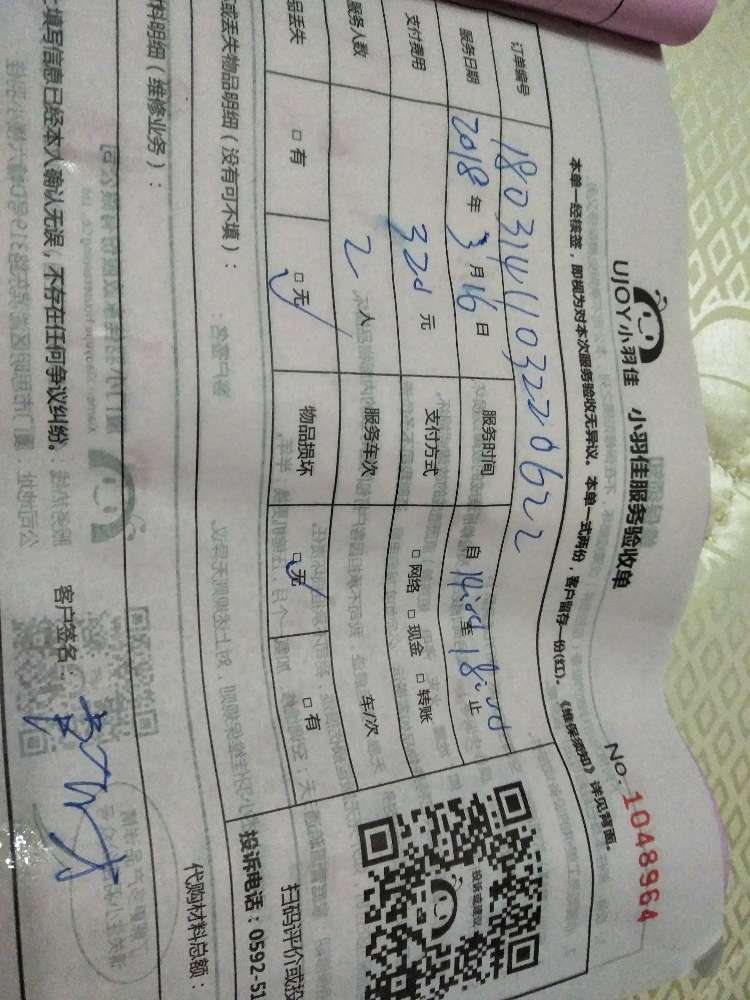 UJOY小羽佳 小羽佳服务验收单
No. 1048964
本单一经核签，即视为对本次服务验收无异议。本单一式两份，客户留存一份(红)。《维保须知》详见背面。
订单编号 1803141103220622
服务日期 2018年3月16日 服务时间 自14:00至18:00止
支付费用 320元 支付方式 □网络 □现金 □转账
服务人数 2人 服务车次 车/次
品丢失 □有 □无 物品损坏 □无 □有
或丢失物品明细（没有可不填）：
扫码评价或投
投诉电话：0592-51
料明细（维修业务）：
代购材料总额：
填写信息已经本人确认无误，不存在任何争议纠纷。 客户签名：